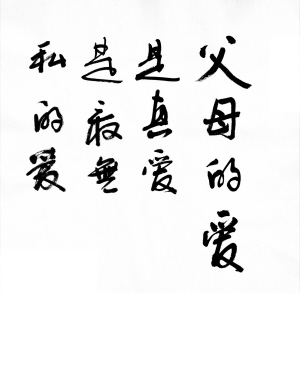 父母的爱
是真爱
是最無
私的爱